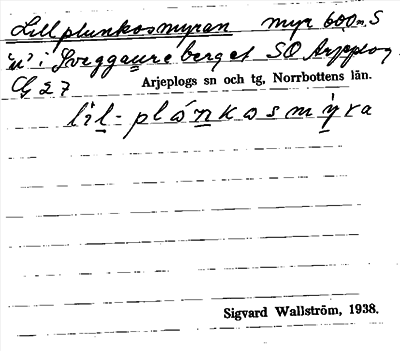 Lillplunkosmyran myr 600 m. S
"u" i Sveggaure berget SO Arjeplog
G 27
Arjeplogs sn och tg, Norrbottens län.
lìl-plónkosmýra
Sigvard Wallström, 1938.